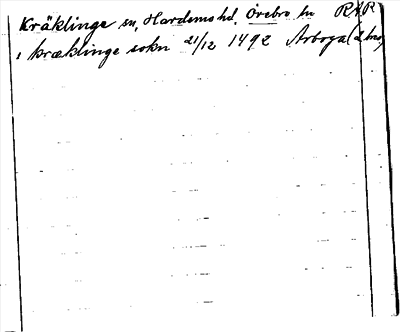 Kräklinge sn, Hardemo hd. Örebro ln RAP
i kræklinge sokn 21/12 1492 Arboga (2 brev)